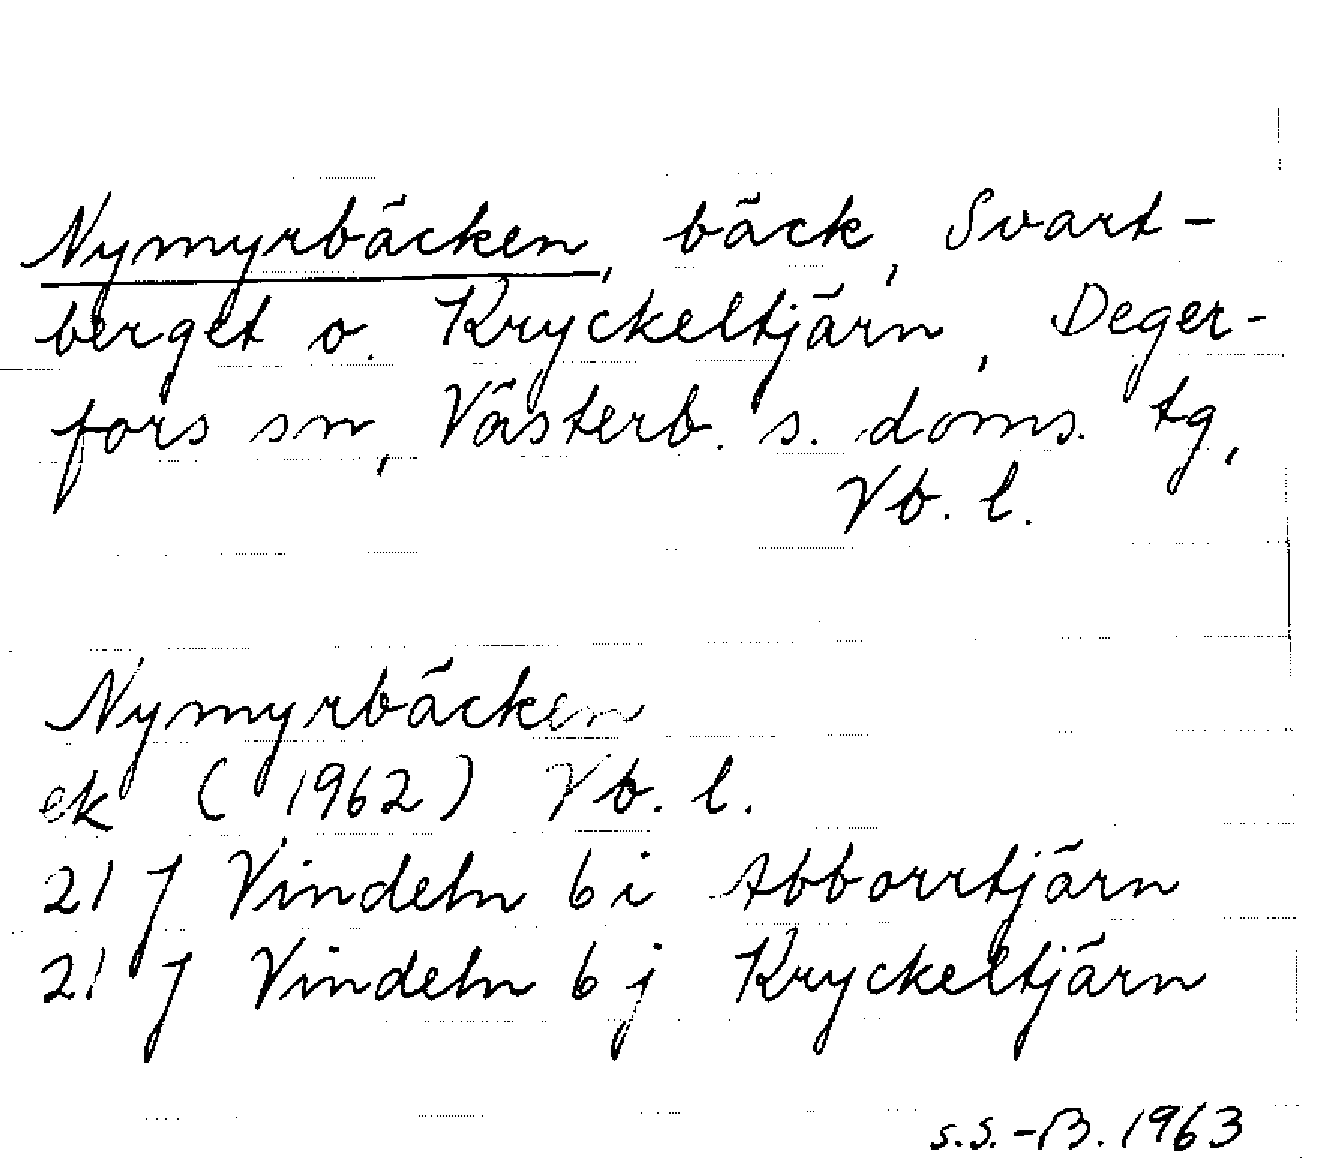 Nymyrbäcken, bäck, Svart-
berget o. Kryckeltjärn, Deger-
fors sn, Västerb. s. doms. tg,
Vb. l.
Nymyrbäcken
ek (1962) Vb. l.
21 J Vindeln 6 i Abborrtjärn
21 J Vindeln 6 j Kryckeltjärn
S.S.-B. 1963